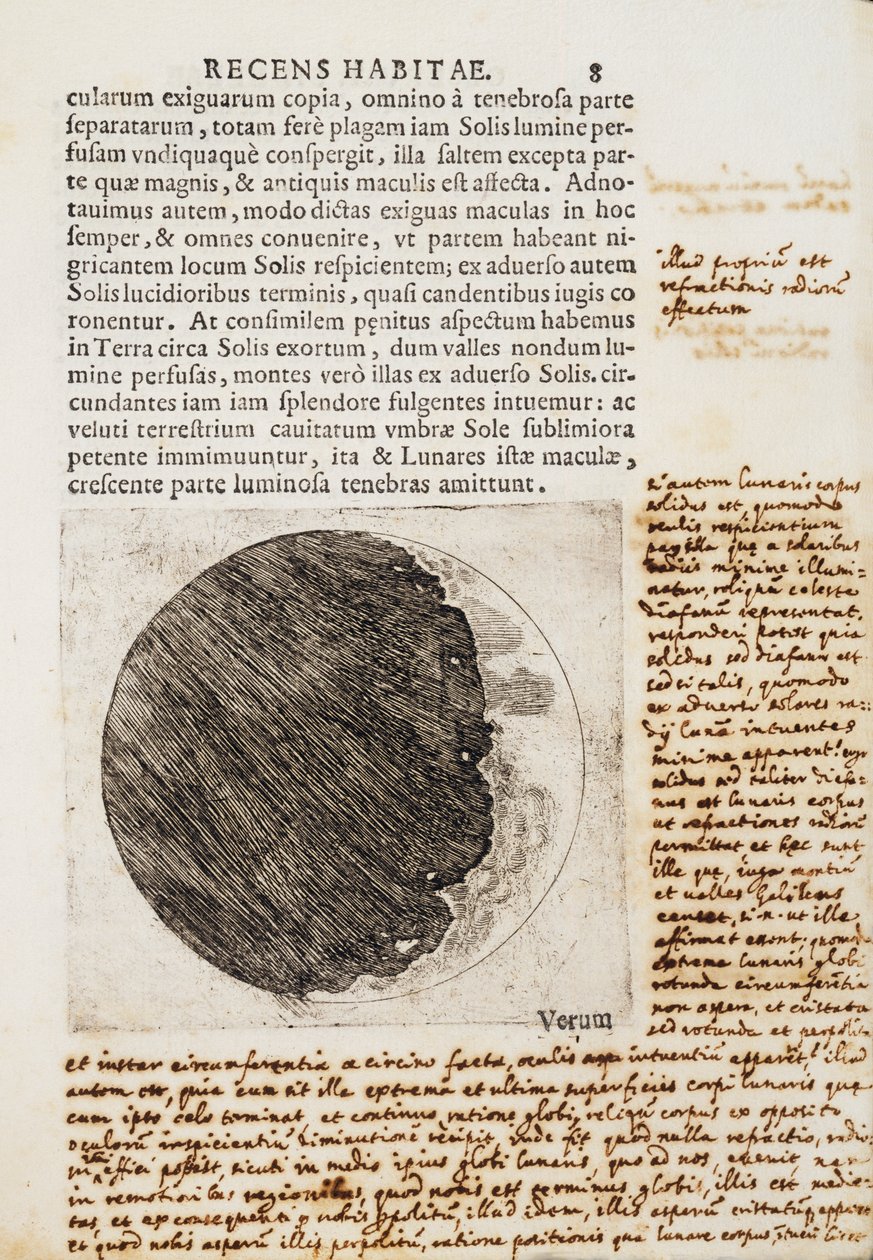 RECENS HABITAE. 8
cularum exiguarum copia, omnino à tenebroſa parte
ſeparatarum, totam ferè plagam iam Solis lumine per-
fuſam vndiquaquè conſpergit, illa ſaltem excepta par-
te quæ magnis, & antiquis maculis eſt affecta. Adno-
tauimus autem, modo dictas exiguas maculas in hoc
ſemper, & omnes conuenire, vt partem habeant ni-
gricantem locum Solis reſpicientem; ex aduerſo autem
Solis lucidioribus terminis, quaſi candentibus iugis co
ronentur. At conſimilem penitus aſpectum habemus
in Terra circa Solis exortum, dum valles nondum lu-
mine perfuſas, montes verò illas ex aduerſo Solis. cir-
cundantes iam iam ſplendore fulgentes intuemur: ac
veluti terreſtrium cauitatum vmbræ Sole ſublimiora
petente immimuuntur, ita & Lunares iſtæ maculæ,
creſcente parte luminoſa tenebras amittunt.
illud propriũ est
refractionis radiorũ
effectum
si autem lunaris corpus
solidus est, quomodo
oculis respicientium
pars illa quę a solaribus
radiis minime illumi=
natur, reliquũ celeste
diafanũ representat,
responderi potest quia
solidus sed diafanũ est
sed si talis, quomodo
ex adverso solares ra=
dij lunã intuentes
minime apparent? ergo
solidus sed taliter diafa=
nus est lunaris corpus
ut refractiones radiorũ
permittat, et hęc sunt
ille quę, iuga montiũ
et valles Galileus
censet, si n. ut ille
affirmat essent, quomodo
extrema lunaris globi
rotunda circumferẽtia
non aspera, et cristata
sed rotunda et perpolita
Verum
et instar circumferentia a circino facta, oculis intuentiũ apparẽt? illud
autem est, quia cum sit illa extrema et ultima superficies corpi lunaris quę
cum ipso celo terminat, et continuo, ratione globi, reliqũ corpus ex opposito
oculorũ inspicientiũ diminutionẽ recipit, inde fit quod nulla refractio, radio=
effici possit, sicuti in medio ipsius globi lunaris, quo ad nos, evenit nam
in remotioribus regionibus, quod nobis est terminus globi, illis est medie=
tas, et ex consequenti nobis perpolitũ, illud idem, illis asperũ cristatũq apparet
et quod nobis asperũ illis perpolitũ, ratione positionis qua lunare corpus